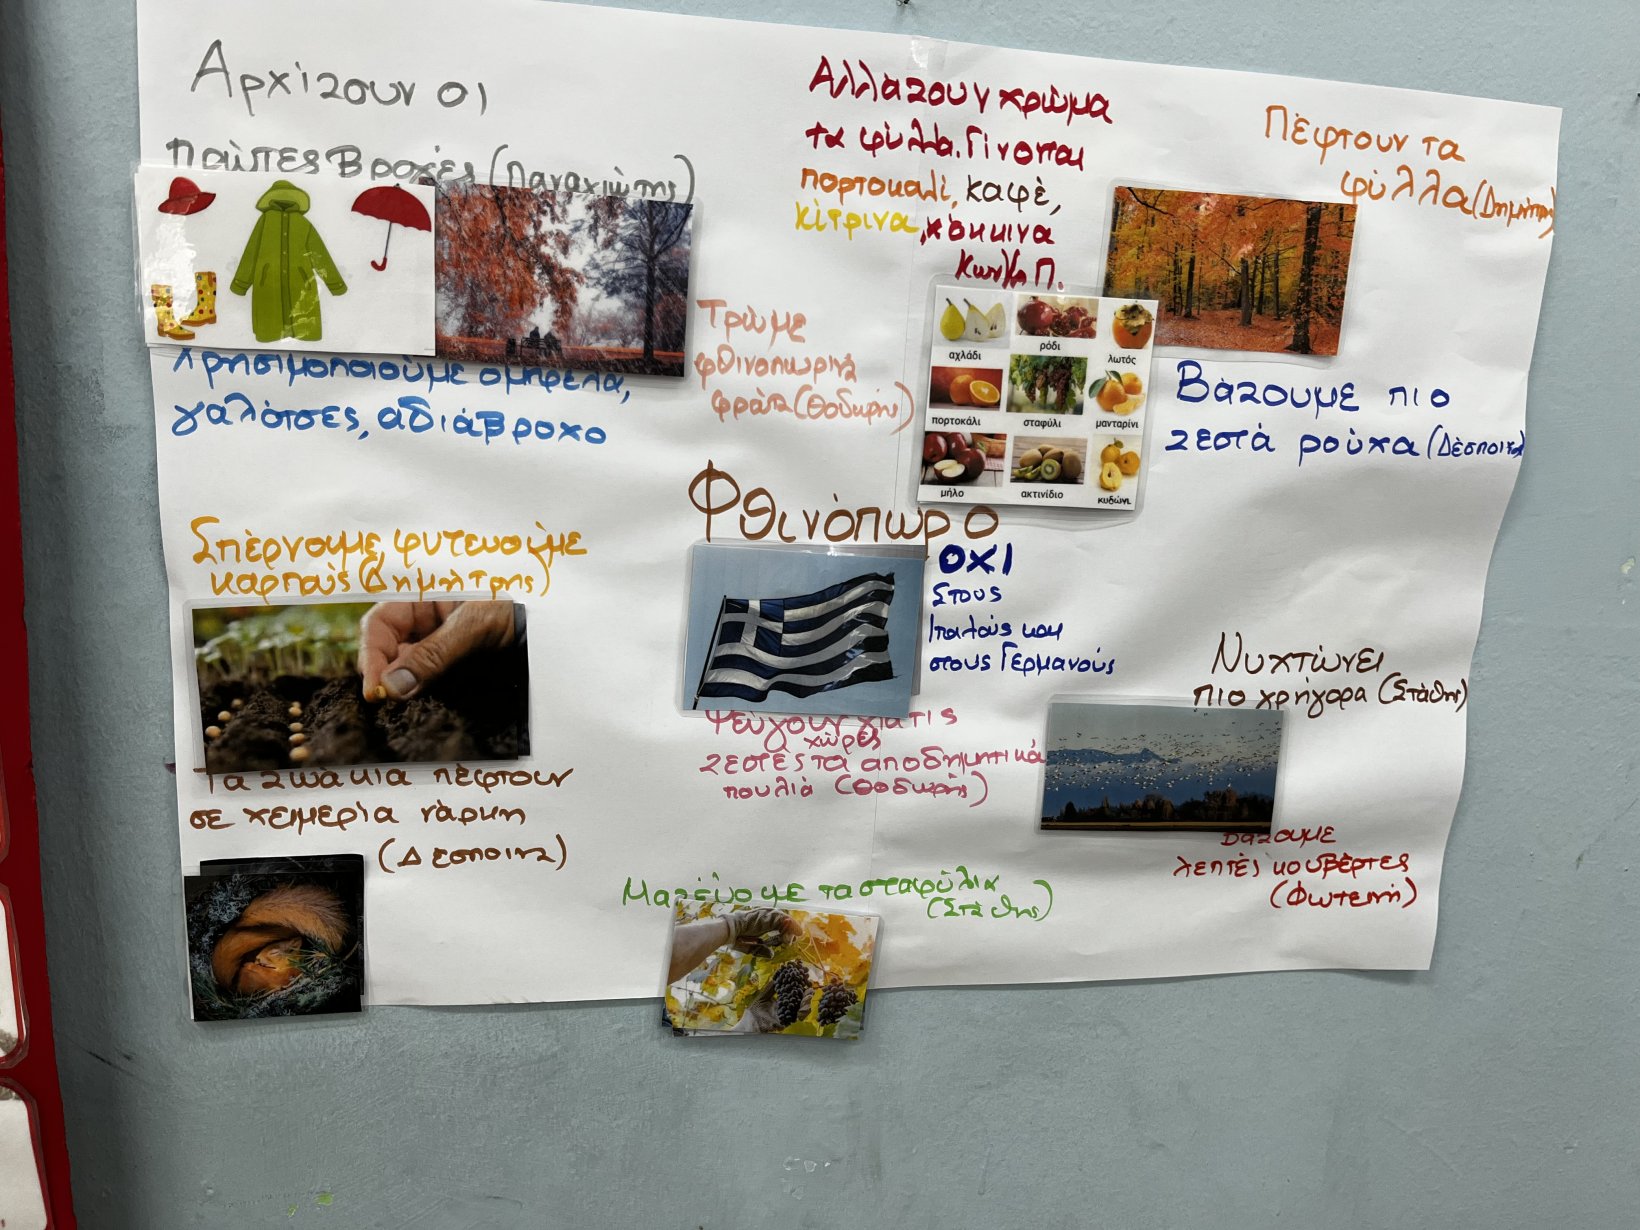 Αρχίζουν οι
πρώτες βροχές (Παναγιώτης)
Χρησιμοποιούμε ομπρέλα,
γαλότσες, αδιάβροχο
Αλλάζουν χρώμα
τα φύλλα. Γίνονται
πορτοκαλί, καφέ,
κίτρινα, κόκκινα
Πέφτουν τα
φύλλα (Δημήτρης)
Τρώμε
φθινοπωρινά
φρούτα (Θοδωρής)
αχλάδι
ρόδι
λωτός
πορτοκάλι
σταφύλι
μανταρίνι
μήλο
ακτινίδιο
κυδώνι
Βάζουμε πιο
ζεστά ρούχα (Δέσποινα)
Φθινόπωρο
Σπέρνουμε, φυτεύουμε
καρπούς (Δημήτρης)
ΟΧΙ
στους
Ιταλούς και
στους Γερμανούς
Νυχτώνει
πιο γρήγορα (Στάθης)
Φεύγουν για τις
χώρες
ζεστές τα αποδημητικά
πουλιά (Θοδωρής)
Τα ζωάκια πέφτουν
σε χειμερία νάρκη
(Δέσποινα)
Βάζουμε
λεπτές κουβέρτες
(Φωτεινή)
Μαζεύουμε τα σταφύλια
(Στάθης)